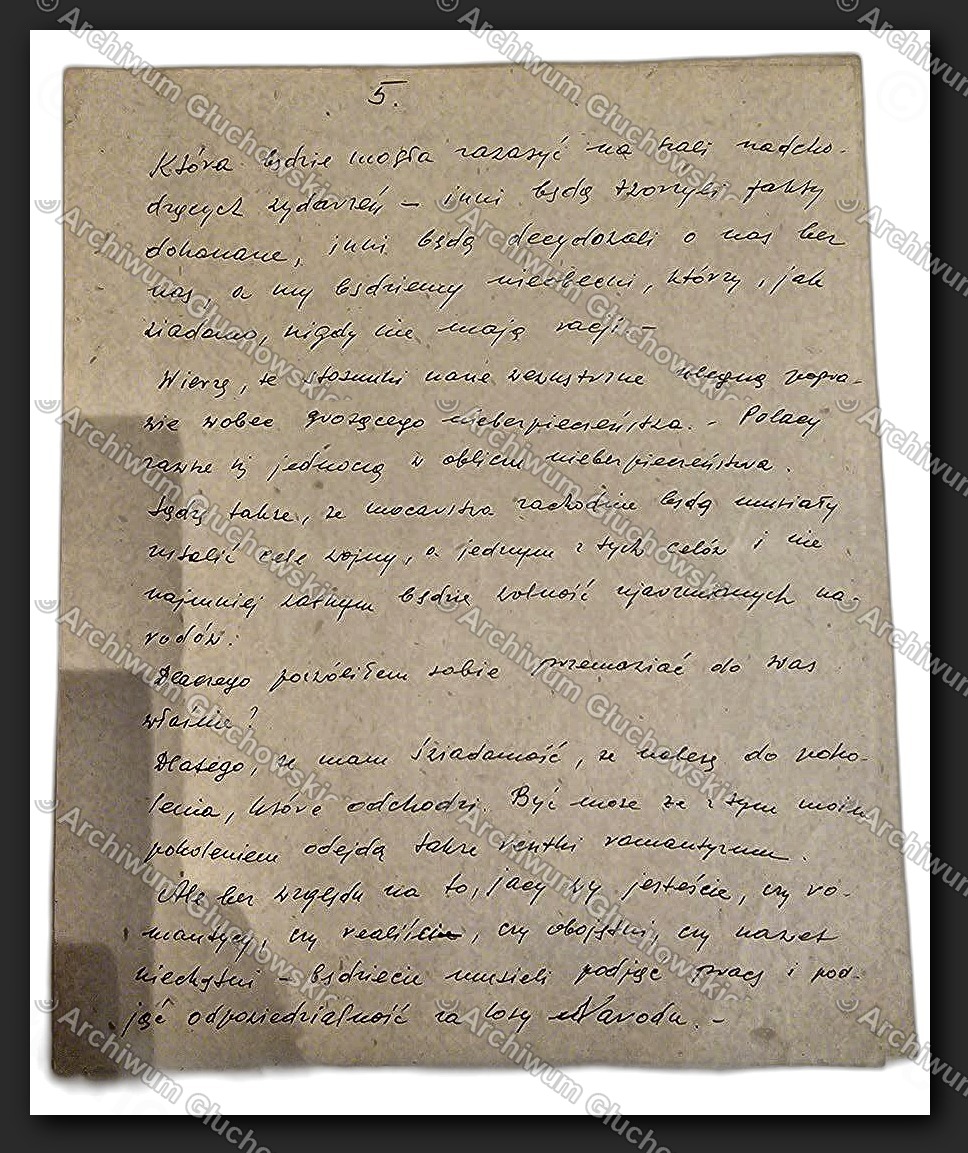 5.
Która będzie mogła zaważyć na szali nadcho-
dzących wydarzeń – inni będą tworzyli fakty
dokonane, inni będą decydowali o nas bez
nas, a my będziemy nieobecni, którzy, jak
wiadomo, nigdy nie mają racji. –
Wierzę, że stosunki nasze wewnętrzne ulegną popra-
wie wobec grożącego niebezpieczeństwa. – Polacy
zawsze się jednoczą w obliczu niebezpieczeństwa.
Sądzę także, że mocarstwa zachodnie będą musiały
ustalić cele wojny, a jednym z tych celów i nie
najmniej ważnym będzie wolność ujarzmionych na-
rodów.
Dlaczego pozwoliłem sobie przemawiać do Was
właśnie?
Dlatego, że mam świadomość, że należę do poko-
lenia, które odchodzi. Być może że z tym moim
pokoleniem odejdą także resztki romantyzmu.
Ale bez względu na to, jacy wy jesteście, czy ro-
mantycy, czy realiści, czy obojętni, czy nawet
niechętni – będziecie musieli podjąć pracę i pod-
jąć odpowiedzialność za losy Narodu. –
© Archiwum Głuchowskich